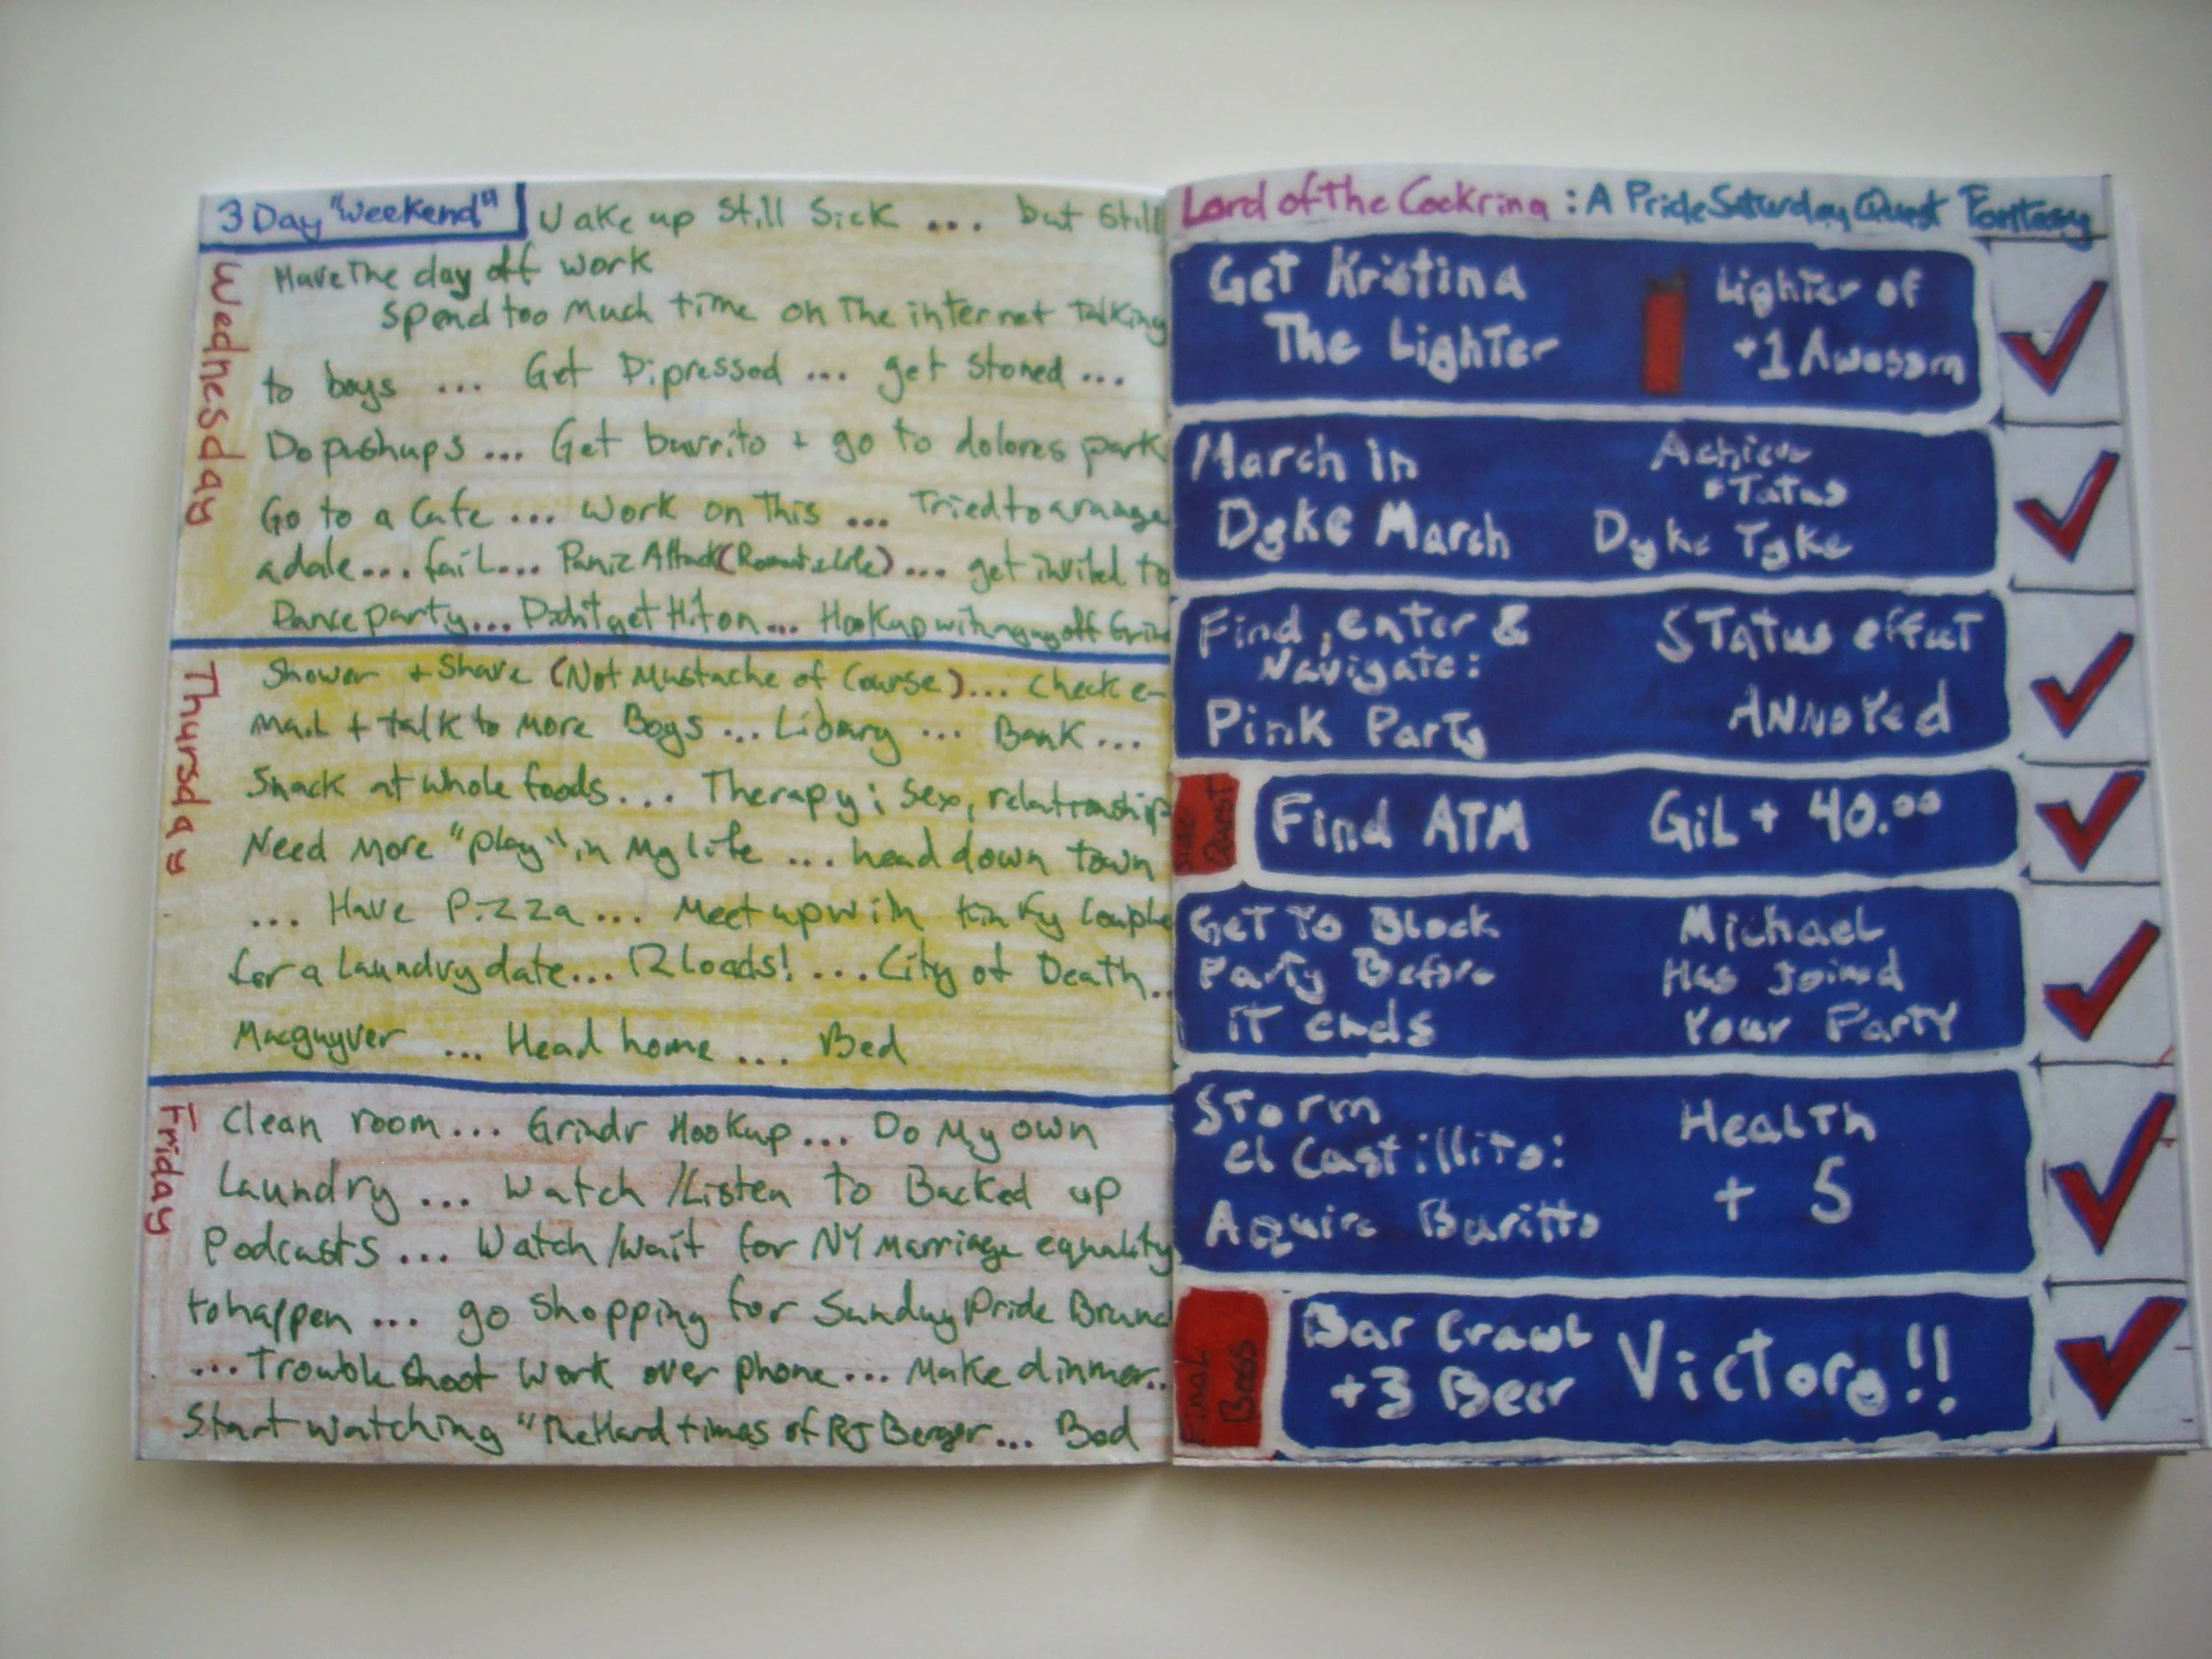 3 Day "Weekend"
Wake up Still Sick ... but Still
Wednesday
Have The day off work
Spend too Much time on The internet Talking
to boys ... Get Dipressed ... get Stoned ...
Do pushups ... Get burrito + go to dolores park
Go to a Cafe ... work on This ... Tried to arange
a date ... fail ... Panic Attack ( ) ... get invited to
Dance party ... Didn't get Hit on ... Hookup with guy off Grind
Thursday
Shower + Shave (Not Mustache of Course) ... Check e-
mail + talk to More Boys ... Libary ... Bank ...
Snack at whole foods ... Therapy; Sex, relationship
Need More "play" in My life ... head down town
... Have Pizza ... Meet up with Kinky Couple
for a laundry date ... 12 loads! ... City of Death ..
Macguyver ... Head home ... Bed
Friday
Clean room ... Grindr Hookup ... Do My own
Laundry ... Watch /Listen to Backed up
Podcasts ... Watch /wait for NY Marriage equality
to happen ... go Shopping for Sunday Pride Brunc
... Trouble Shoot Work over phone ... Make dinner ..
Start watching "The Hard times of RJ Berger ... Bed
Lord of The Cockring : A Pride Saturday Quest Fantasy
Get Kristina
The Lighter
Lighter of
+1 Awesom
March in
Dyke March
Achieve
Status
Dyke Tyke
Find, enter &
Navigate:
Pink Party
STatus effect
ANNoYed
Side
Quest
Find ATM
GiL + 40.00
GeT To Block
Party Before
iT ends
Michael
Has Joined
Your Party
STorm
el Castillito:
Aquire Buritto
Health
+ 5
Final
Boss
Bar Crawl
+3 Beer
Victory!!